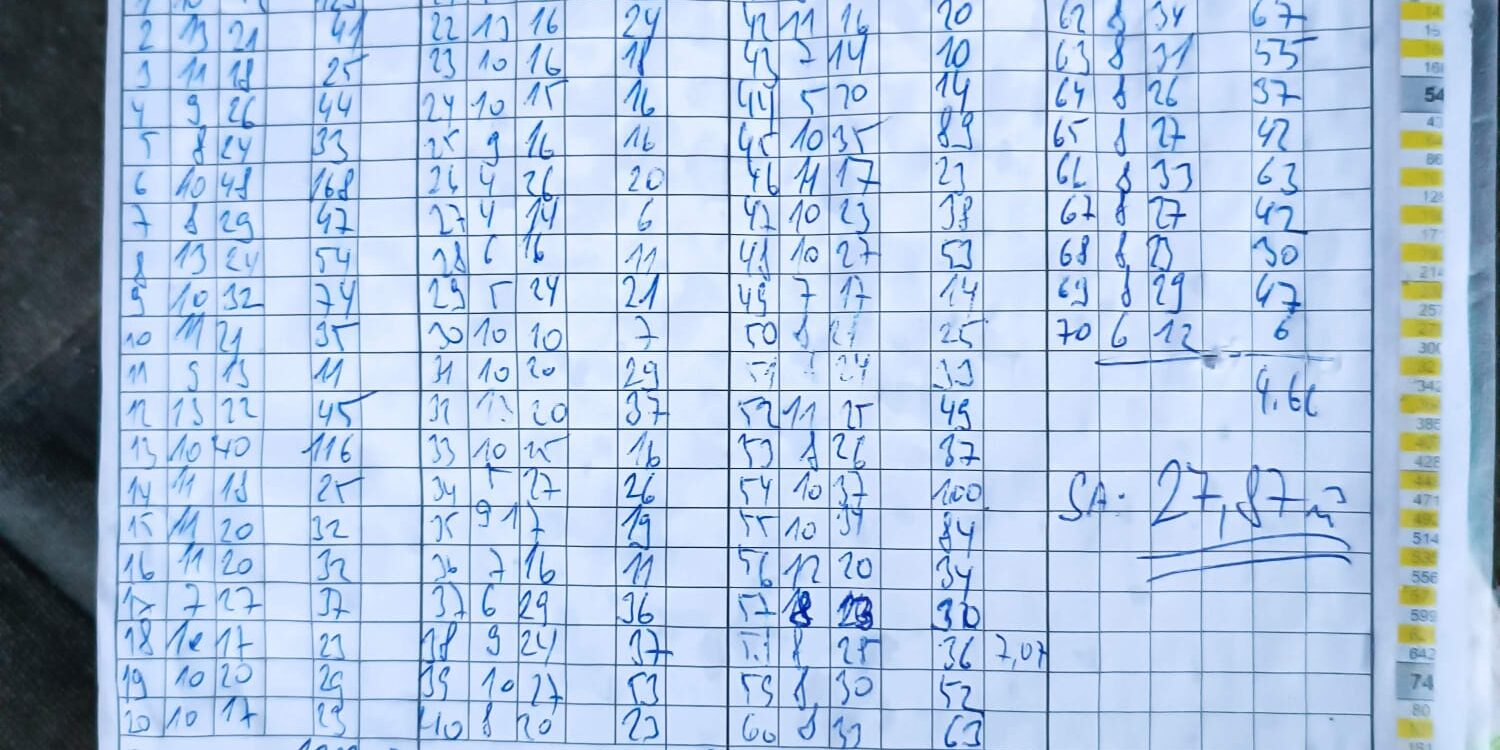 2 13 21 41 22 13 16 24 42 11 16 20 62 8 34 67
3 11 18 25 23 10 16 18 43 7 14 10 63 8 31 55
4 9 26 44 24 10 15 16 44 5 20 14 64 8 26 37
5 8 24 33 25 9 16 16 45 10 35 89 65 8 27 42
6 10 48 168 26 4 26 20 46 11 17 23 66 8 33 63
7 8 29 47 27 4 14 6 47 10 23 38 67 8 27 42
8 13 24 54 28 6 16 11 48 10 27 53 68 8 23 30
9 10 32 74 29 5 24 21 49 7 17 14 69 8 29 47
10 11 21 35 30 10 10 7 50 8 21 25 70 6 12 6
11 9 13 11 31 10 20 29 24 33 4.66
12 13 22 45 32 13 20 37 52 11 25 49
13 10 40 116 33 10 15 16 53 8 26 37
14 11 18 25 34 5 27 26 54 10 37 100 SA: 27,87 m³
15 11 20 32 35 9 17 19 55 10 34 84
16 11 20 32 36 7 16 11 56 12 20 34
17 7 27 37 37 6 29 36 57 8 23 30
18 10 17 23 38 9 24 37 58 8 25 36 7,07
19 10 20 29 39 10 27 53 59 8 30 52
20 10 17 23 40 8 20 23 60 8 33 63
54
74